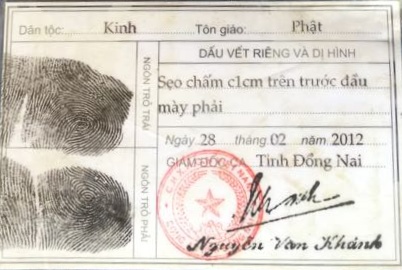 Dân tộc: Kinh Tôn giáo: Phật
DẤU VẾT RIÊNG VÀ DỊ HÌNH
Sẹo chấm c1cm trên trước đầu
mày phải
NGÓN TRỎ TRÁI
Ngày 28 tháng 02 năm 2012
GIÁM ĐỐC CA Tỉnh Đồng Nai
NGÓN TRỎ PHẢI
Nguyễn Văn Khánh